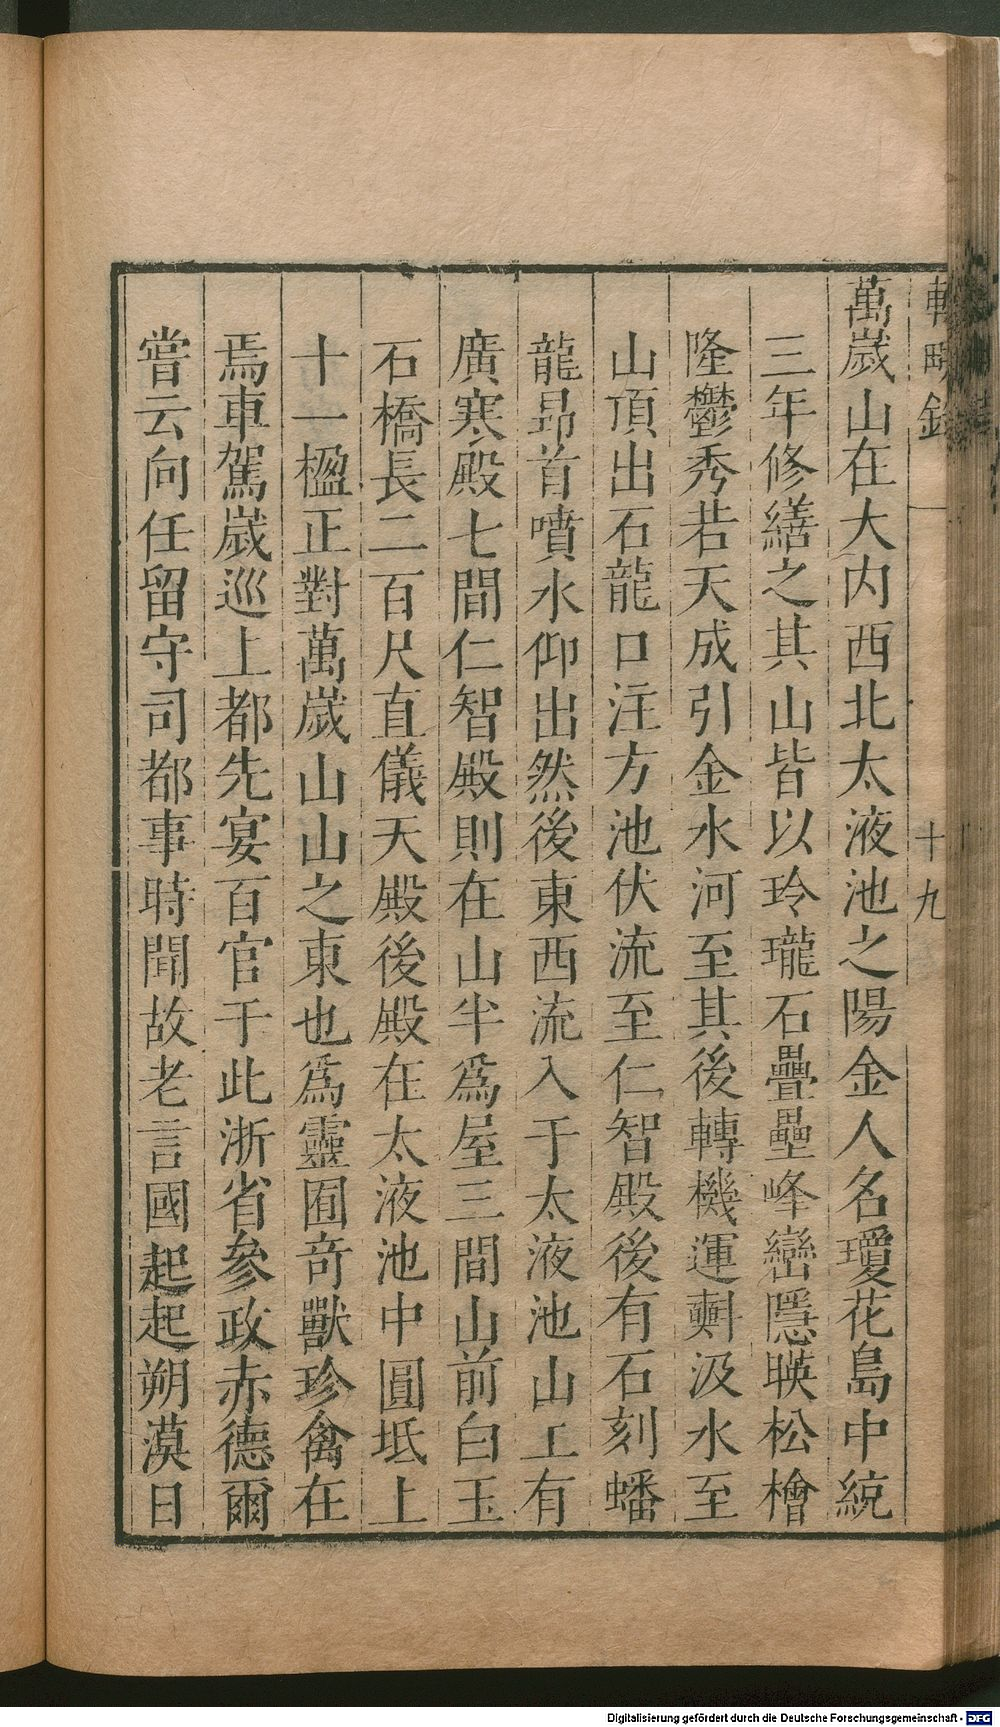 輟畊錄
十九
萬歲山在大内西北太液池之陽金人名瓊花島中統
三年修繕之其山皆以玲瓏石疊壘峰巒隱暎松檜
隆鬱秀若天成引金水河至其後轉機運㪺汲水至
山頂出石龍口注方池伏流至仁智殿後有石刻蟠
龍昻首噴水仰出然後東西流入于太液池山上有
廣寒殿七間仁智殿則在山半爲屋三間山前白玉
石橋長二百尺直儀天殿後殿在太液池中圓坻上
十一楹正對萬歲山山之東也爲靈囿奇獸珍禽在
焉車駕歲巡上都先宴百官于此浙省參政赤德爾
嘗云向任留守司都事時聞故老言國起起朔漠日
Digitalisierung gefördert durch die Deutsche Forschungsgemeinschaft - DFG